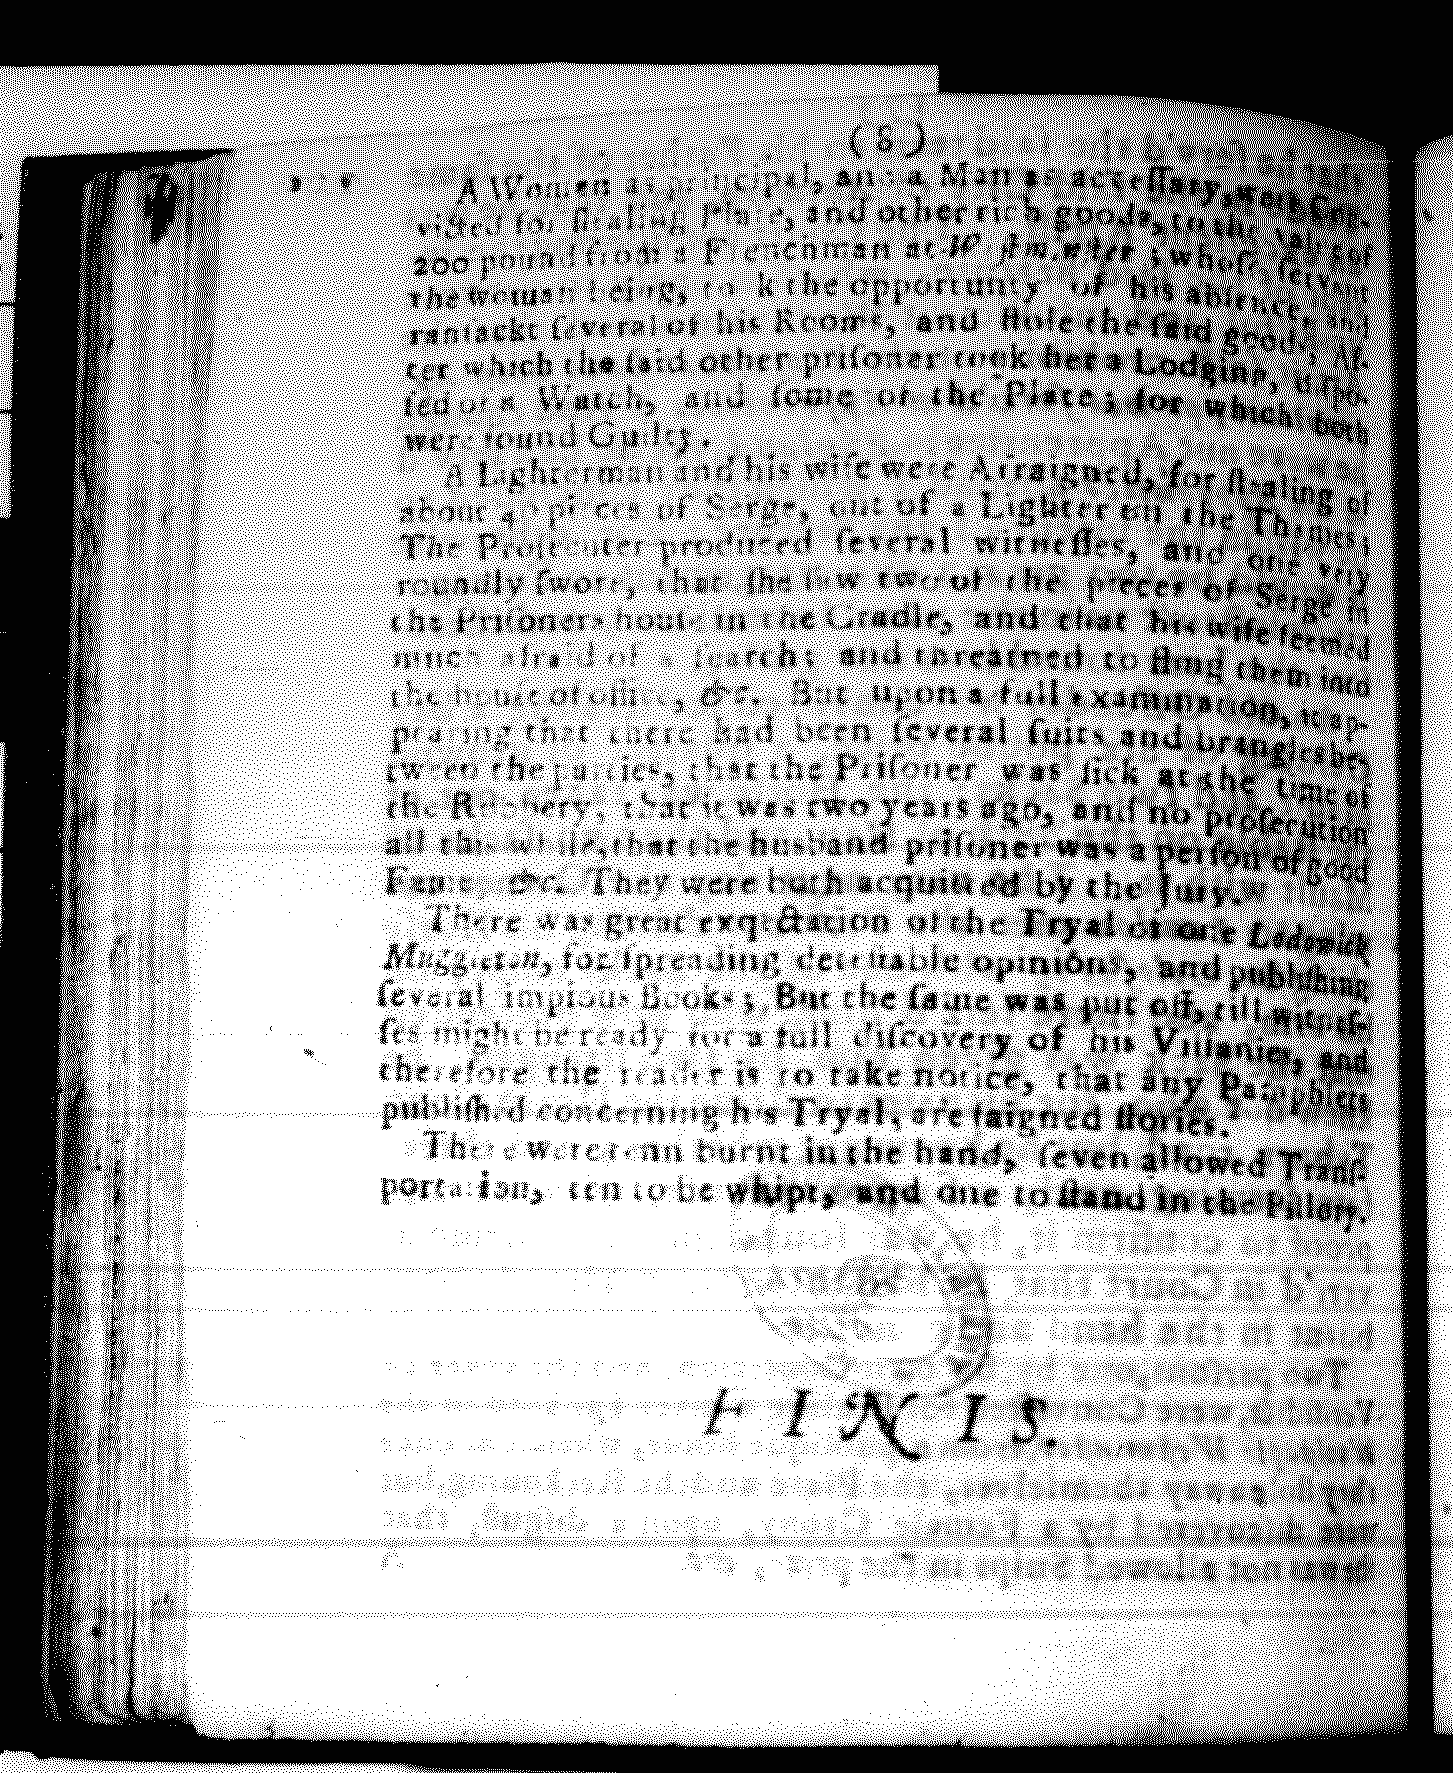 (8)
A Woman as principal, and a Man as accessary, were
for stealing Plate, and other rich goods, to the value of
200 pound from a Frenchman at Westminster; whose servant
the woman being, took the opportunity of his absence, and
ransackt several of his Rooms, and stole the said goods; Af-
ter which the said other prisoner took her a Lodging, dispo-
sed of a Watch, and some of the Plate; for which both
were found Guilty.
A Lighterman and his wife were Arraigned, for stealing of
about pieces of Serge, out of a Lighter on the Thames;
The Prosecuter produced several witnesses, and one very
roundly swore, that she saw two of the pieces of Serge in
the Prisoners house in the Cradle, and that his wife seemed
much afraid of a search; and threatned to fling them into
the house of office, &c. But upon a full examination, it ap-
pearing that there had been several suits and brangles be-
tween the parties, that the Prisoner was sick at the time of
the Robbery, that it was two years ago, and no prosecution
all this while, that the husband prisoner was a person of good
Fame, &c. They were both acquitted by the Jury.
There was great expectation of the Tryal of one Lodowick
Muggleton, for spreading detestable opinions, and publishing
several impious Books; But the same was put off, till witnes-
ses might be ready for a full discovery of his Villanies, and
therefore the reader is to take notice, that any Pamphlets
published concerning his Tryal, are faigned stories.
There were tenn burnt in the hand, seven allowed Trans-
portation, ten to be whipt, and one to stand in the Pillory.
FINIS.